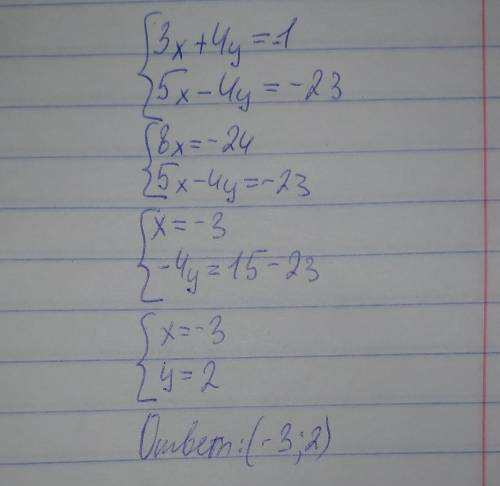 3x+4y=-1
5x-4y=-23
8x=-24
5x-4y=-23
x=-3
-4y=15-23
x=-3
y=2
Ответ:(-3;2)